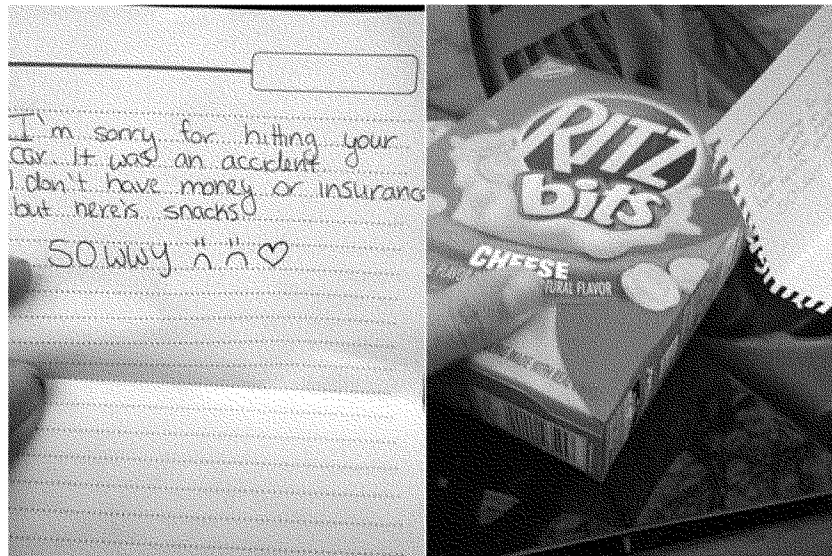 I'm sorry for hitting your
car. It was an accident
I don't have money or insuranc
but here's snacks!
SOWWY
RITZ
bits
CHEESE
TURAL FLAVOR